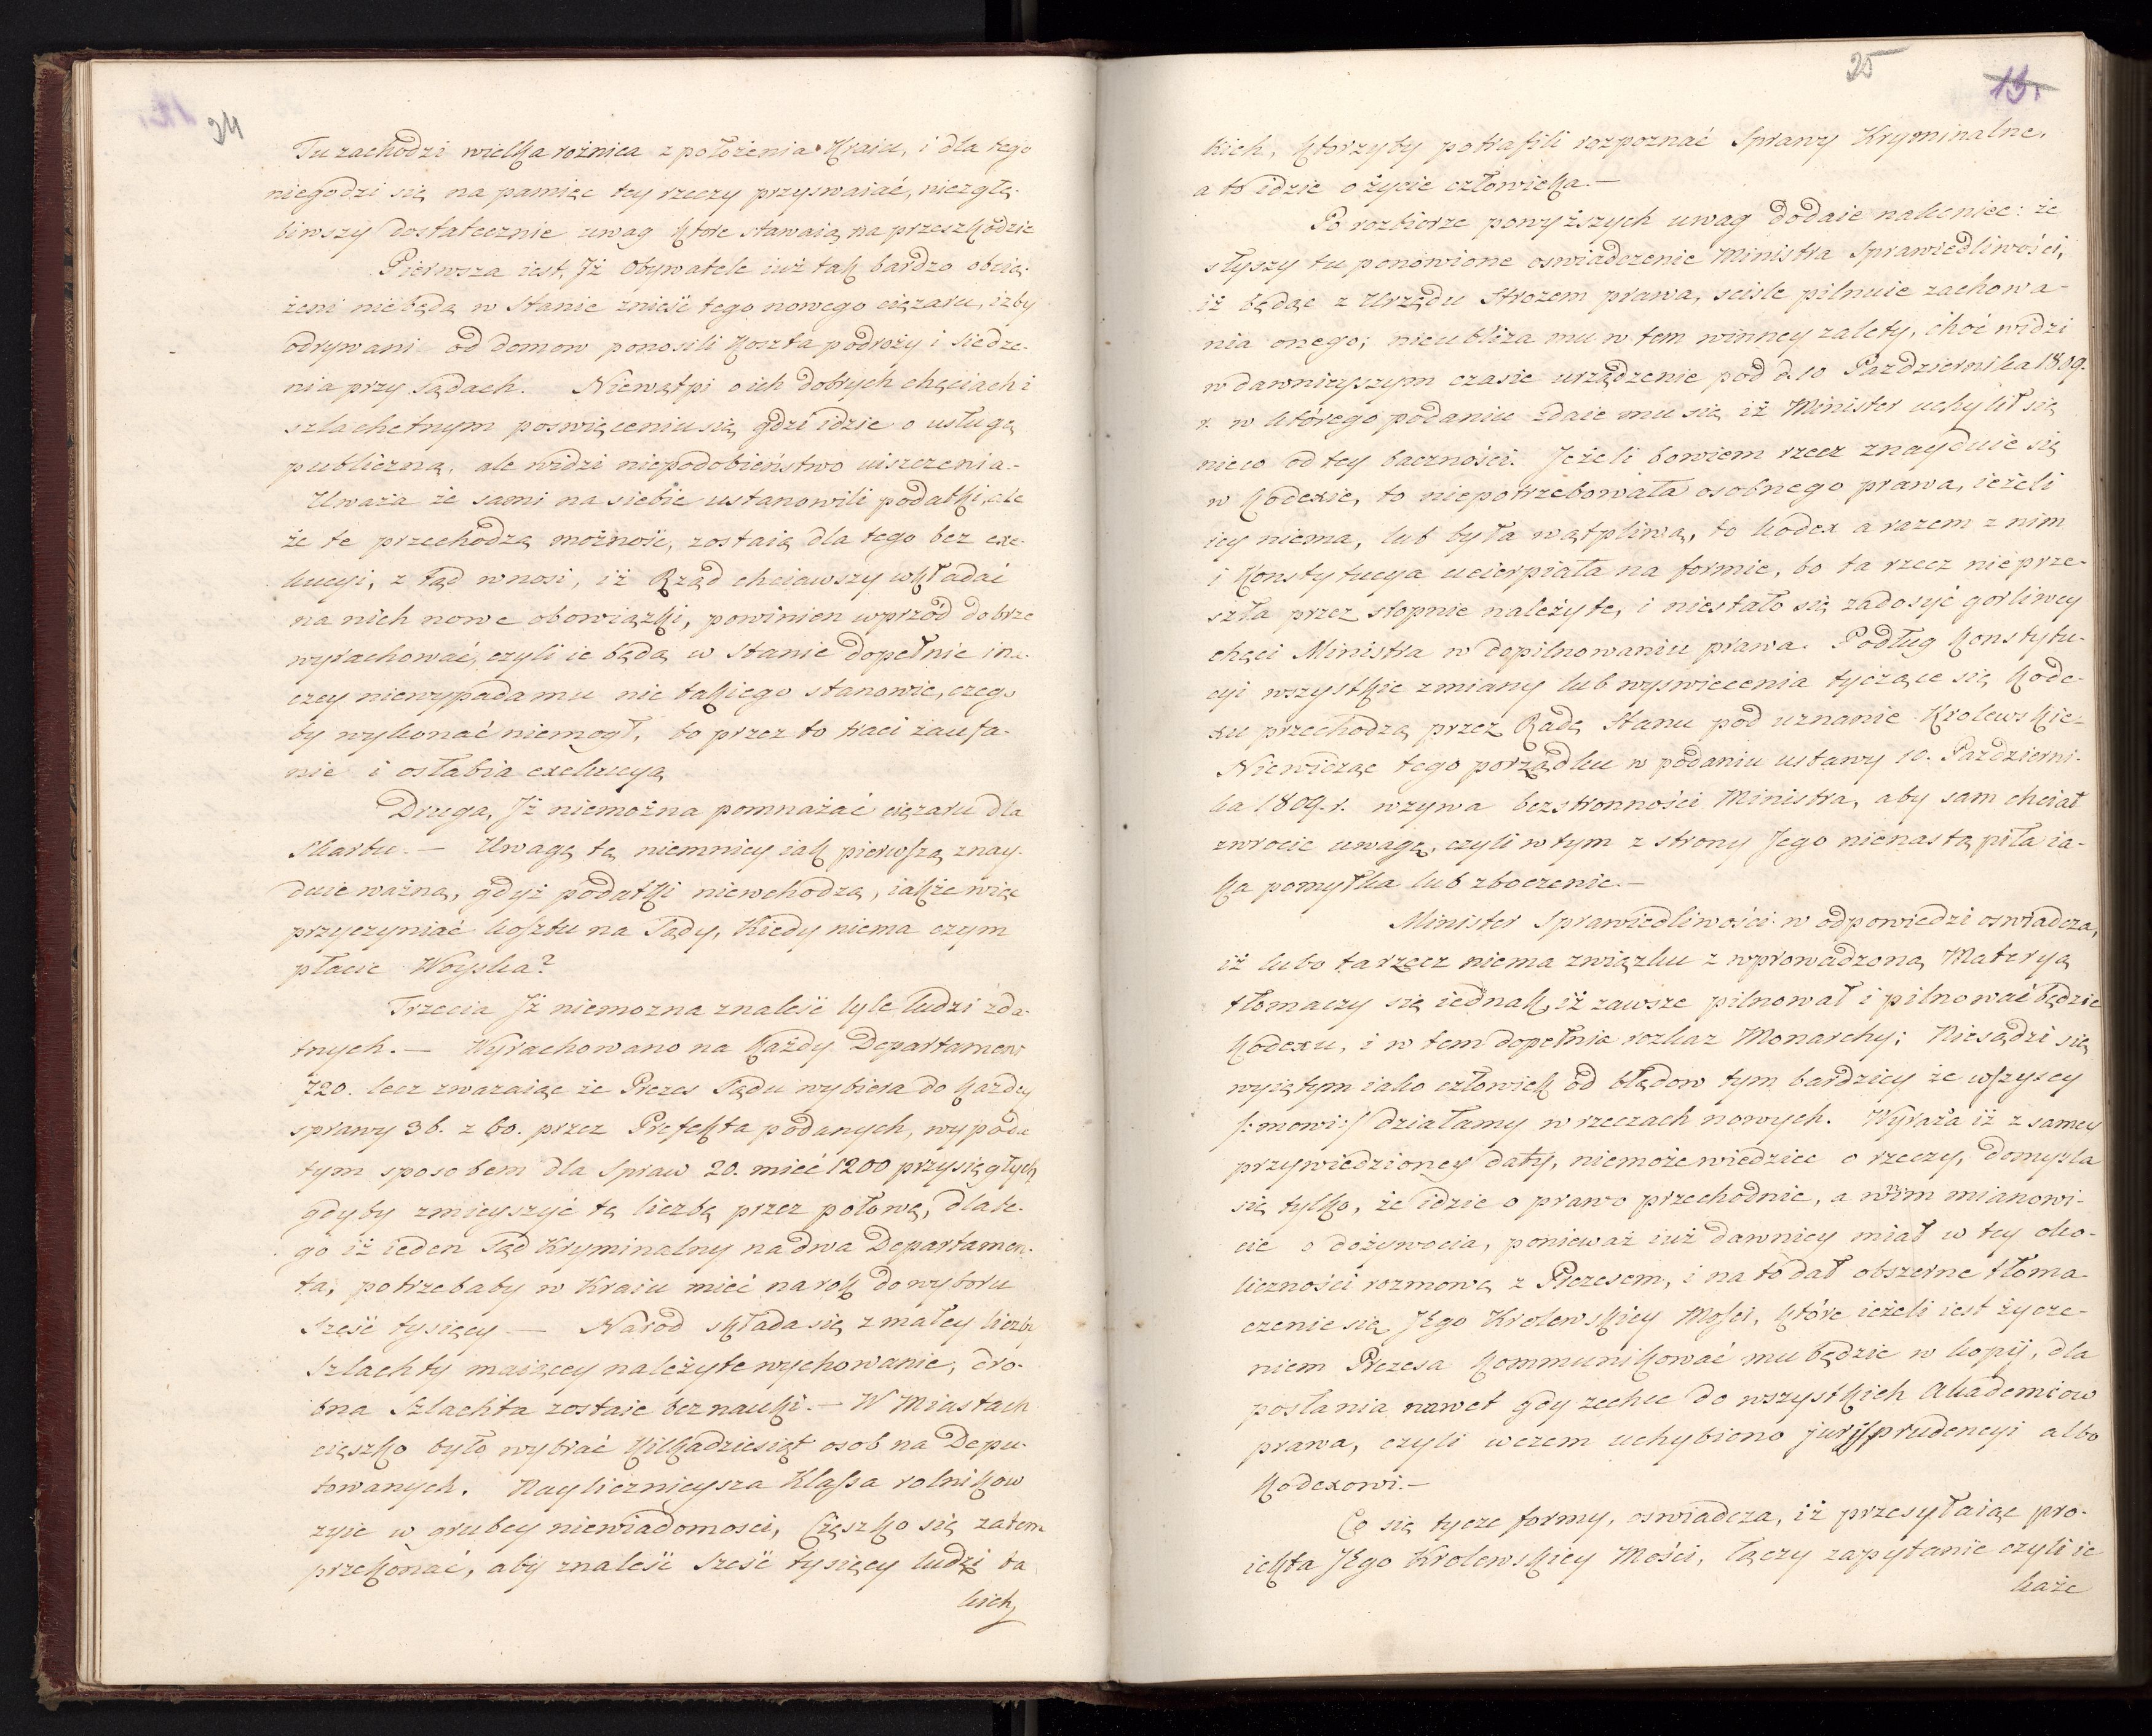 24
Tu zachodzi wielka rożnica z położenia Kraiu, i dla tego
niegodzi się na pamięc tey rzeczy przyswaiać, niezgłę-
biwszy dostatecznie uwag ktore stawaią na przeszkodzie
Pierwsza iest, Jż Obywatele iuż tak bardzo obcią-
żeni niebędą w Stanie znieść tego nowego ciężaru, iżby
odrywani od domow ponosili koszta podroży i siedze-
nia przy Sądach. Niewątpi o ich dobrych chęciach i
szlachetnym poswięceniu się gdzi idzie o usługę
publiczną, ale widzi niepodobieństwo uiszczenia.
Uważa że sami na siebie ustanowili podatki, ale
że te przechodzą możność, zostaią dla tego bez exe-
kucyi, z tąd wnosi, iż Rząd chciawszy wkładać
na nich nowe obowiązki, powinien wprzód dobrze
wyrachować, czyli ie będą w Stanie dopełnić ina-
czey niewypada mu nic takiego stanowic, czego
by wykonać niemogł, bo przez to traci zaufa-
nie i osłabia exekucyą
Druga, Jż niemożna pomnażać ciężaru dla
Skarbu. — Uwagę tę niemniey iak pierwszą znay-
duie ważną, gdyż podatki niewchodzą, iakże więc
przyczyniać kosztu na Sądy, Kiedy niema czym
płacic Woyska?
Trzecia Jż niemozna znaleść tyle ludzi zda-
tnych. — Wyrachowano na każdy Departament
720. lecz zwazaiąc że Prezes Sądu wybiera do każdey
sprawy 36. z 60. przez Prefekta podanych, wypada
tym sposobem dla Spraw 20. mieć 1200 przysięgłych
gdyby zmieyszyć tę liczbę przez połowę, dlate-
go iż ieden Sąd Kryminalny na dwa Departamen-
ta, potrzebaby w Kraiu mieć na rok do wyboru
Sześć tysięcy — Narod składa się z małey liczby
Szlachty maiącey należyte wychowanie, dro-
bna Szlachta zostaie bez nauki. — W Miastach
cięszko było wybrać kilkadziesiąt osob na Depu-
towanych. Naylicznieysza Klassa rolnikow
zyie w grubey niewiadomosci, Cięszko się zatem
przekonać, aby znaleść sześć tysięcy ludzi ta
kich
25
13.
kich, ktorzyby potrafili rozpoznać Sprawy Kryminalne,
a to idzie o życie człowieka. —
Po rozbiorze powyższych uwag dodaie nakoniec: że
słyszy tu ponowione oswiadczenie Ministra Sprawiedliwości,
iż będąc z Urzędu Strozem prawa, scisle pilnuie zachowa-
nia onego; nieubliza mu w tem winney zalety, choć widzi
w dawnieyszym czasie urządzenie pod d. 10 Pazdziernika 1809.
r. w którego podaniu zdaie mu się iż Minister uchylił się
nieco od tey baczności. Jeżeli bowiem rzecz znayduie się
w kodexie, to niepotrzebowała osobnego prawa, ieżeli
iey niema, lub była wątpliwą, to kodex a razem z nim
i Konstytucya ucierpiała na formie, bo ta rzecz nie prze-
szła przez stopnie należyte, i niestało się zadosyć gorliwey
chęci Ministra w dopilnowaniu prawa. Podług Konstytu-
cyi wszystkie zmiany lub wyswiecenia tyczące się kode-
xu przechodzą przez Radę Stanu pod uznanie Krolewskie.
Niewidząc tego porządku w podaniu ustawy 10. Pazdzierni-
ka 1809. r. wzywa bezstronności Ministra, aby sam chciał
zwrocic uwagę, czyli w tym z strony Jego nienastąpiła ia-
ka pomyłka lub zboczenie. —
Minister Sprawiedliwości w odpowiedzi oswiadcza,
iż lubo ta rzecz niema związku z wprowadzoną Materyą
tłomaczy się iednak, iż zawsze pilnował i pilnować będzie
kodexu, i w tem dopełnia rozkaz Monarchy; Niesądzi się
wyiętym iako człowiek od błędow tym bardziey że wszyscy
/: mowi :/ działamy w rzeczach nowych. Wyraża iż z samey
przywiedzioney daty, niemoże wiedziec o rzeczy, domysla
się tylko, że idzie o prawo przechodnie, a w nim mianowi-
cie o dożywocia, ponieważ iuż dawniey miał w tey oko-
liczności rozmowę z Prezesem, i na to dał obszerne tłoma-
czenie się Jego Krolewskiey Mości, które ieżeli iest życze-
niem Prezesa kommunikować mu będzie w kopii, dla
posłania nawet gdy zechce do wszystkich Akademiow
prawa, czyli w czem uchybiono jurysprudencyi albo
kodexowi. —
Co się tycze formy, oswiadcza, iż przesyłaiąc pro-
iekta Jego Krolewskiey Mości, łączy zapytanie czyli ie
każe